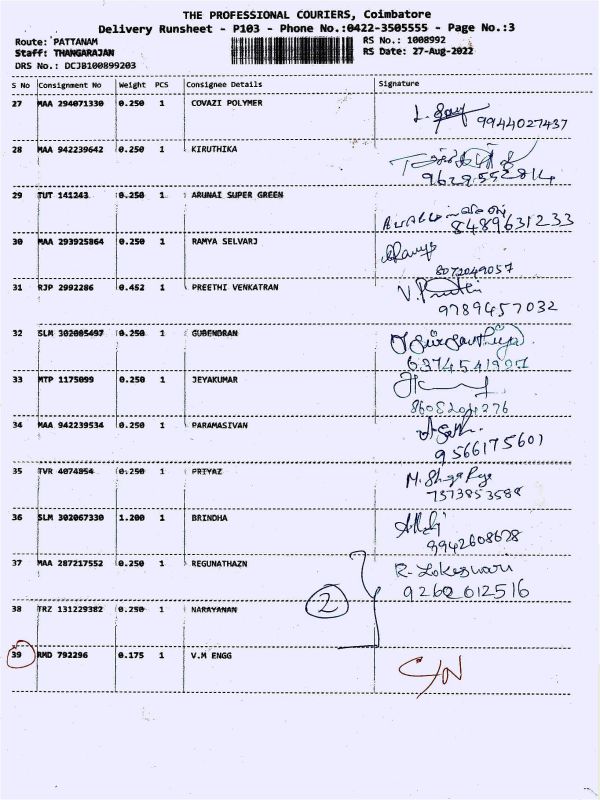 THE PROFESSIONAL COURIERS, Coimbatore
Delivery Runsheet - P103 - Phone No.:0422-3505555 - Page No.:3
Route: PATTANAM RS No.: 1008992
Staff: THANGARAJAN RS Date: 27-Aug-2022
DRS No.: DCJB100899203
S No Consignment No Weight PCS Consignee Details Signature
27 MAA 294071330 0.250 1 COVAZI POLYMER
9944027437
28 MAA 942239642 0.250 1 KIRUTHIKA
29 TUT 141243 0.250 1 ARUNAI SUPER GREEN
8489631233
30 MAA 293925864 0.250 1 RAMYA SELVARJ
8072049057
31 RJP 2992286 0.452 1 PREETHI VENKATRAN
9789457032
32 SLM 302005497 0.250 1 GUBENDRAN
33 MTP 1175099 0.250 1 JEYAKUMAR
34 MAA 942239534 0.250 1 PARAMASIVAN
9566175601
35 TVR 4074854 0.250 1 PRIYAZ
7373853588
36 SLM 302067330 1.200 1 BRINDHA
8942608678
37 MAA 287217552 0.250 1 REGUNATHAZN R. Lokeswari
9262612516
2
38 TRZ 131229382 0.250 1 NARAYANAN
39 RMD 792296 0.175 1 V.M ENGG C/N